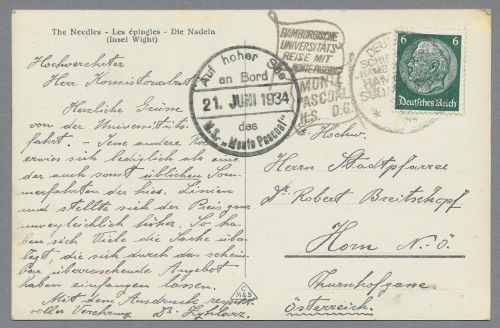 The Needles - Les épingles - Die Nadeln
(Insel Wight)
Hochverehrter
Herr Konsistorialrat
Herzliche Grüsse
von der Universitäts-
fahrt. - Jene andere
erwies sich lediglich als eine
der auch sonst üblichen Som-
merfahrten der hies. Linien
und stellte sich der Preis ganz
unvergleichlich höher. So ha-
ben sich Viele die Sache über-
legt, die sich durch das schein-
bar überraschende Angebot
haben einfangen lassen.
Mit dem Ausdrucke
voller Verehrung Dr.
Auf hoher See
an Bord
21. JUNI 1934
des
M.S. „Monte Pascoal"
HAMBURGISCHE
UNIVERSITÄTS
REISE MIT
MONTE PASCOAL
MONTE
PASCOAL
H.S. D.G.
6 6
Deutsches Reich
C
M&S
S. Hochw.
Herrn Stadtpfarrer
Dr. Robert Breitschopf
Horn N.-Ö.
Thurnhofgasse
Österreich.